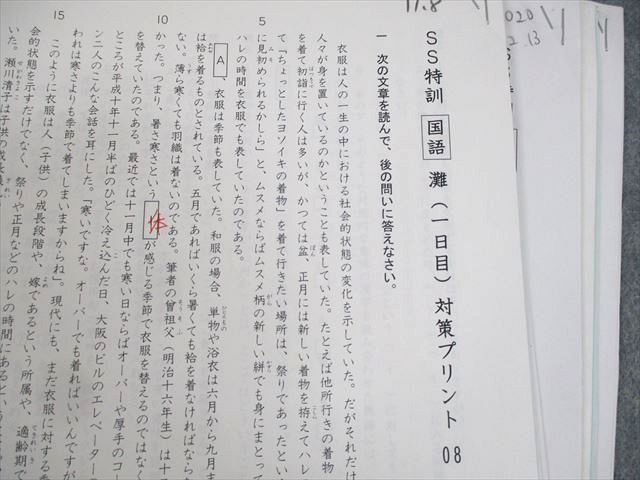 11.8
2020
2.13
SS特訓 国語 灘(一日目)対策プリント 08
一 次の文章を読んで、後の問いに答えなさい。
衣服は人の一生の中における社会的状態の変化を示していた。だがそれだけ
人々が身を置いているのかということも表していた。たとえば他所行きの着物
を着て初詣に行く人は多いが、かつては盆、正月には新しい着物を拵えてハレ
て「ちょっとしたヨソイキの着物」を着て行きたい場所は、祭りであったとい
に見初められるかしら」と、ムスメならばムスメ柄の新しい絣でも身にまとって
5
ハレの時間を衣服でも表していたのである。
A、衣服は季節も表していた。和服の場合、単物や浴衣は六月から九月ま
は袷を着るものとされている。五月であればいくら暑くても袷を着なければなら
ない。薄ら寒くても羽織は着ないのである。筆者の曾祖父(明治十六年生)は十
かった。つまり、暑さ寒さという体が感じる季節で衣服を替えるのではなく
10
を替えていたのである。最近では十一月中でも寒い日ならばオーバーや厚手のコー
ところが平成十年十一月半ばのひどく冷え込んだ日、大阪のビルのエレベーターの
ン二人のこんな会話を耳にした。「寒いですな。オーバーでも着ればいいんですが
われは寒さよりも季節で着てしまいますからね」。現代にも、まだ衣服に対する季
このように衣服は人(子供)の成長段階や、嫁であるという所属や、適齢期で
15
会的状態を示すだけでなく、祭りや正月などのハレの時間にあるという
いた。瀬川清子は子供の成長